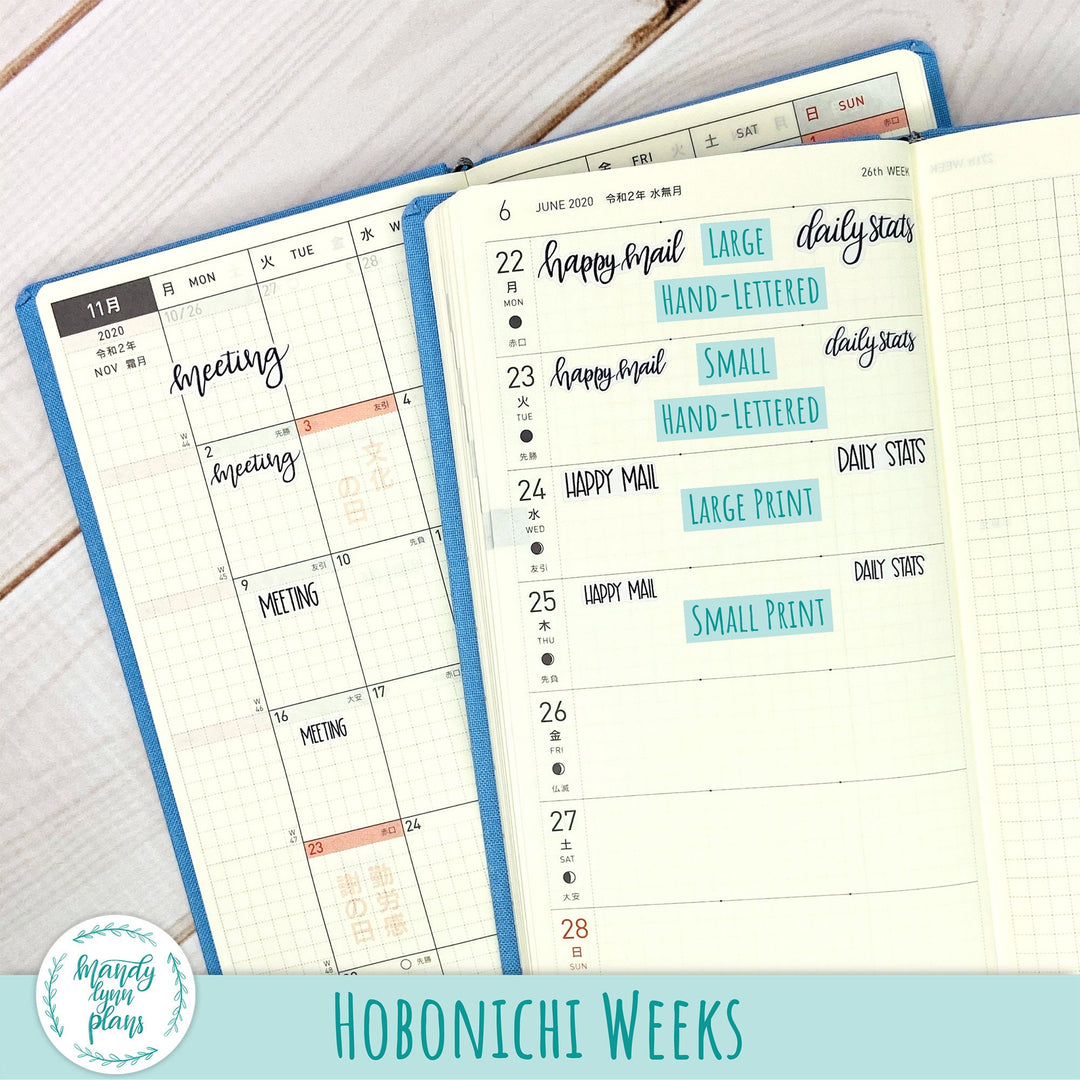 日 SUN
土 SAT
金 FRI
赤口
11月
月 MON
火 TUE
水 W
2020
令和2年
NOV 霜月
10/26
27
28
meeting
W 44
2 先勝
3 友引
4
meeting
文化の日
W 45
9 友引
10 先負
MEETING
W 46
16 大安
17 赤口
MEETING
W 47
23 赤口
24
勤労感謝の日
W 48
先勝
6 JUNE 2020 令和2年 水無月
26th WEEK
22
月
MON
赤口
happy mail LARGE daily stats
HAND-LETTERED
23
火
TUE
先勝
happy mail SMALL daily stats
HAND-LETTERED
24
水
WED
友引
HAPPY MAIL DAILY STATS
LARGE PRINT
25
木
THU
先負
HAPPY MAIL DAILY STATS
SMALL PRINT
26
金
FRI
仏滅
27
土
SAT
大安
28
日
SUN
mandy
lynn
plans
HOBONICHI WEEKS